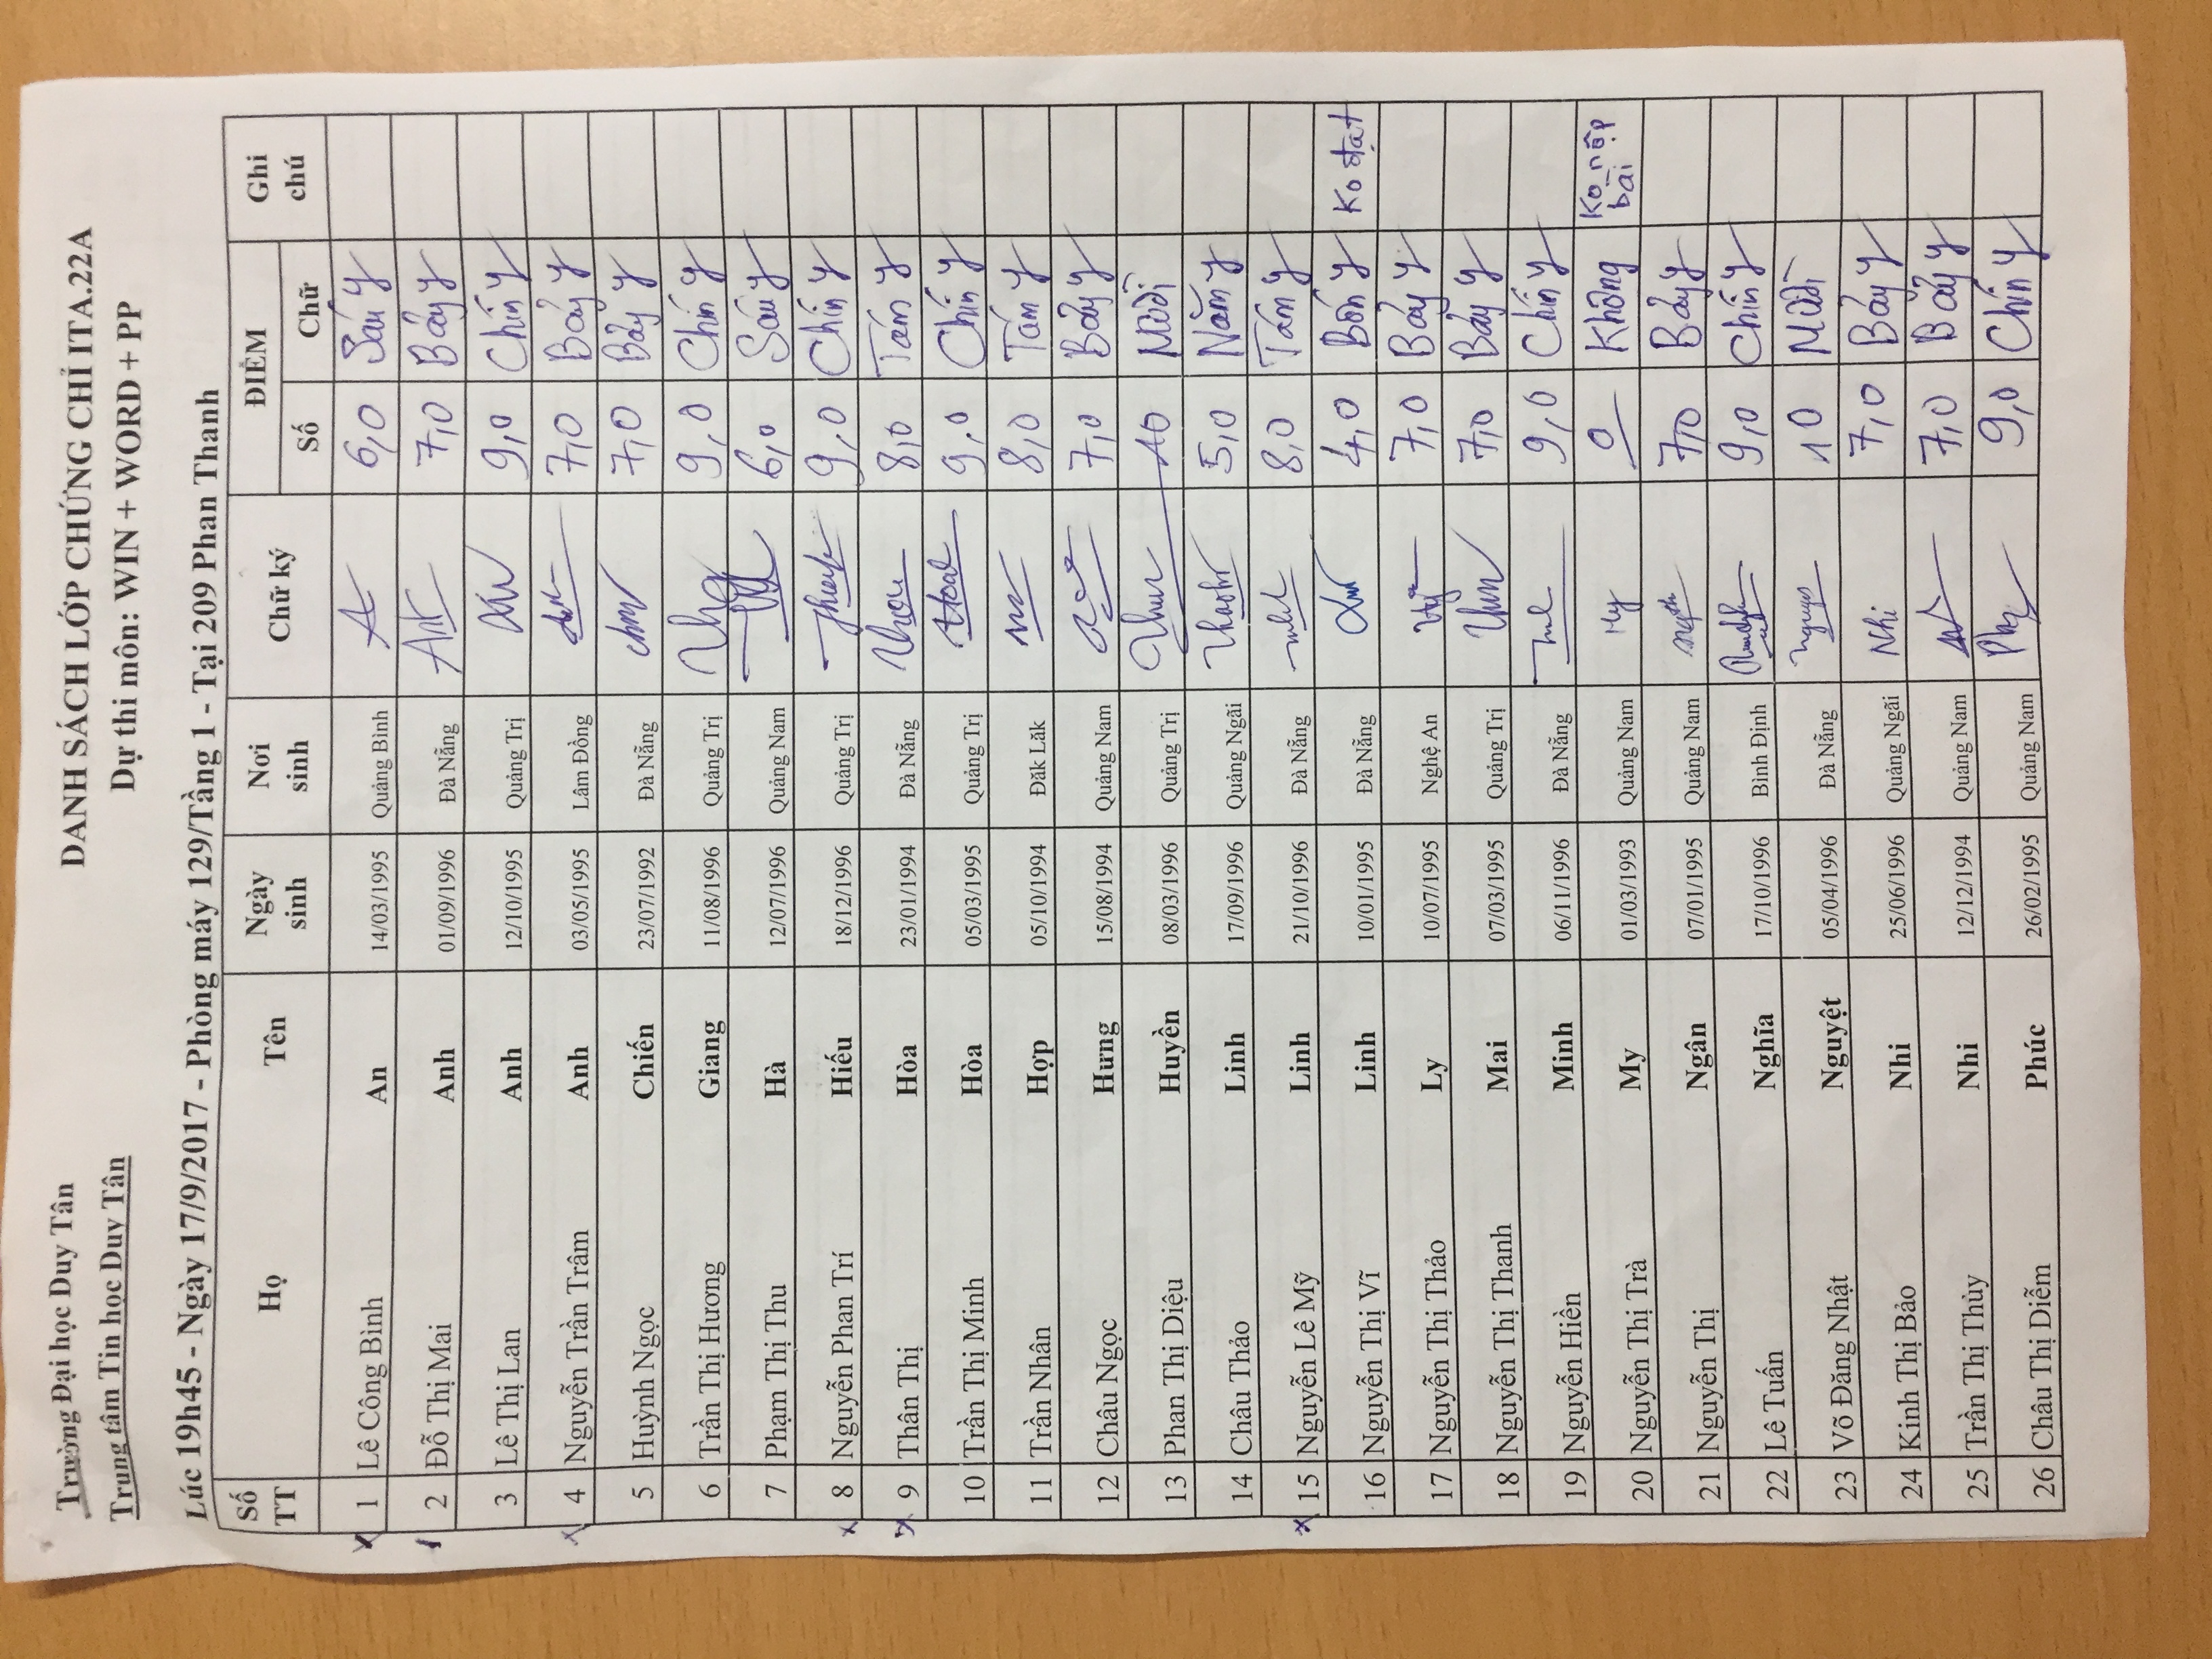 Trường Đại học Duy Tân
Trung tâm Tin học Duy Tân
DANH SÁCH LỚP CHỨNG CHỈ ITA.22A
Dự thi môn: WIN + WORD + PP
Lúc 19h45 - Ngày 17/9/2017 - Phòng máy 129/Tầng 1 - Tại 209 Phan Thanh
Số TT Họ Tên Ngày sinh Nơi sinh Chữ ký ĐIỂM Ghi chú
Số Chữ
1 Lê Công Bình An 14/03/1995 Quảng Bình 6,0 Sáu
2 Đỗ Thị Mai Anh 01/09/1996 Đà Nẵng Anh 7,0 Bảy
3 Lê Thị Lan Anh 12/10/1995 Quảng Trị 9,0 Chín
4 Nguyễn Trần Trâm Anh 03/05/1995 Lâm Đồng 7,0 Bảy
5 Huỳnh Ngọc Chiến 23/07/1992 Đà Nẵng 7,0 Bảy
6 Trần Thị Hương Giang 11/08/1996 Quảng Trị 9,0 Chín
7 Phạm Thị Thu Hà 12/07/1996 Quảng Nam 6,0 Sáu
8 Nguyễn Phan Trí Hiếu 18/12/1996 Quảng Trị 9,0 Chín
9 Thân Thị Hòa 23/01/1994 Đà Nẵng 8,0 Tám
10 Trần Thị Minh Hòa 05/03/1995 Quảng Trị 9,0 Chín
11 Trần Nhân Hợp 05/10/1994 Đăk Lăk 8,0 Tám
12 Châu Ngọc Hưng 15/08/1994 Quảng Nam 7,0 Bảy
13 Phan Thị Diệu Huyền 08/03/1996 Quảng Trị 10 Mười
14 Châu Thảo Linh 17/09/1996 Quảng Ngãi 5,0 Năm
15 Nguyễn Lê Mỹ Linh 21/10/1996 Đà Nẵng 8,0 Tám
16 Nguyễn Thị Vĩ Linh 10/01/1995 Đà Nẵng 4,0 Bốn Ko đạt
17 Nguyễn Thị Thảo Ly 10/07/1995 Nghệ An 7,0 Bảy
18 Nguyễn Thị Thanh Mai 07/03/1995 Quảng Trị 7,0 Bảy
19 Nguyễn Hiền Minh 06/11/1996 Đà Nẵng 9,0 Chín
20 Nguyễn Thị Trà My 01/03/1993 Quảng Nam My 0 Không Ko nộp bài
21 Nguyễn Thị Ngân 07/01/1995 Quảng Nam 7,0 Bảy
22 Lê Tuấn Nghĩa 17/10/1996 Bình Định 9,0 Chín
23 Võ Đăng Nhật Nguyệt 05/04/1996 Đà Nẵng 10 Mười
24 Kinh Thị Bảo Nhi 25/06/1996 Quảng Ngãi Nhi 7,0 Bảy
25 Trần Thị Thùy Nhi 12/12/1994 Quảng Nam 7,0 Bảy
26 Châu Thị Diễm Phúc 26/02/1995 Quảng Nam 9,0 Chín